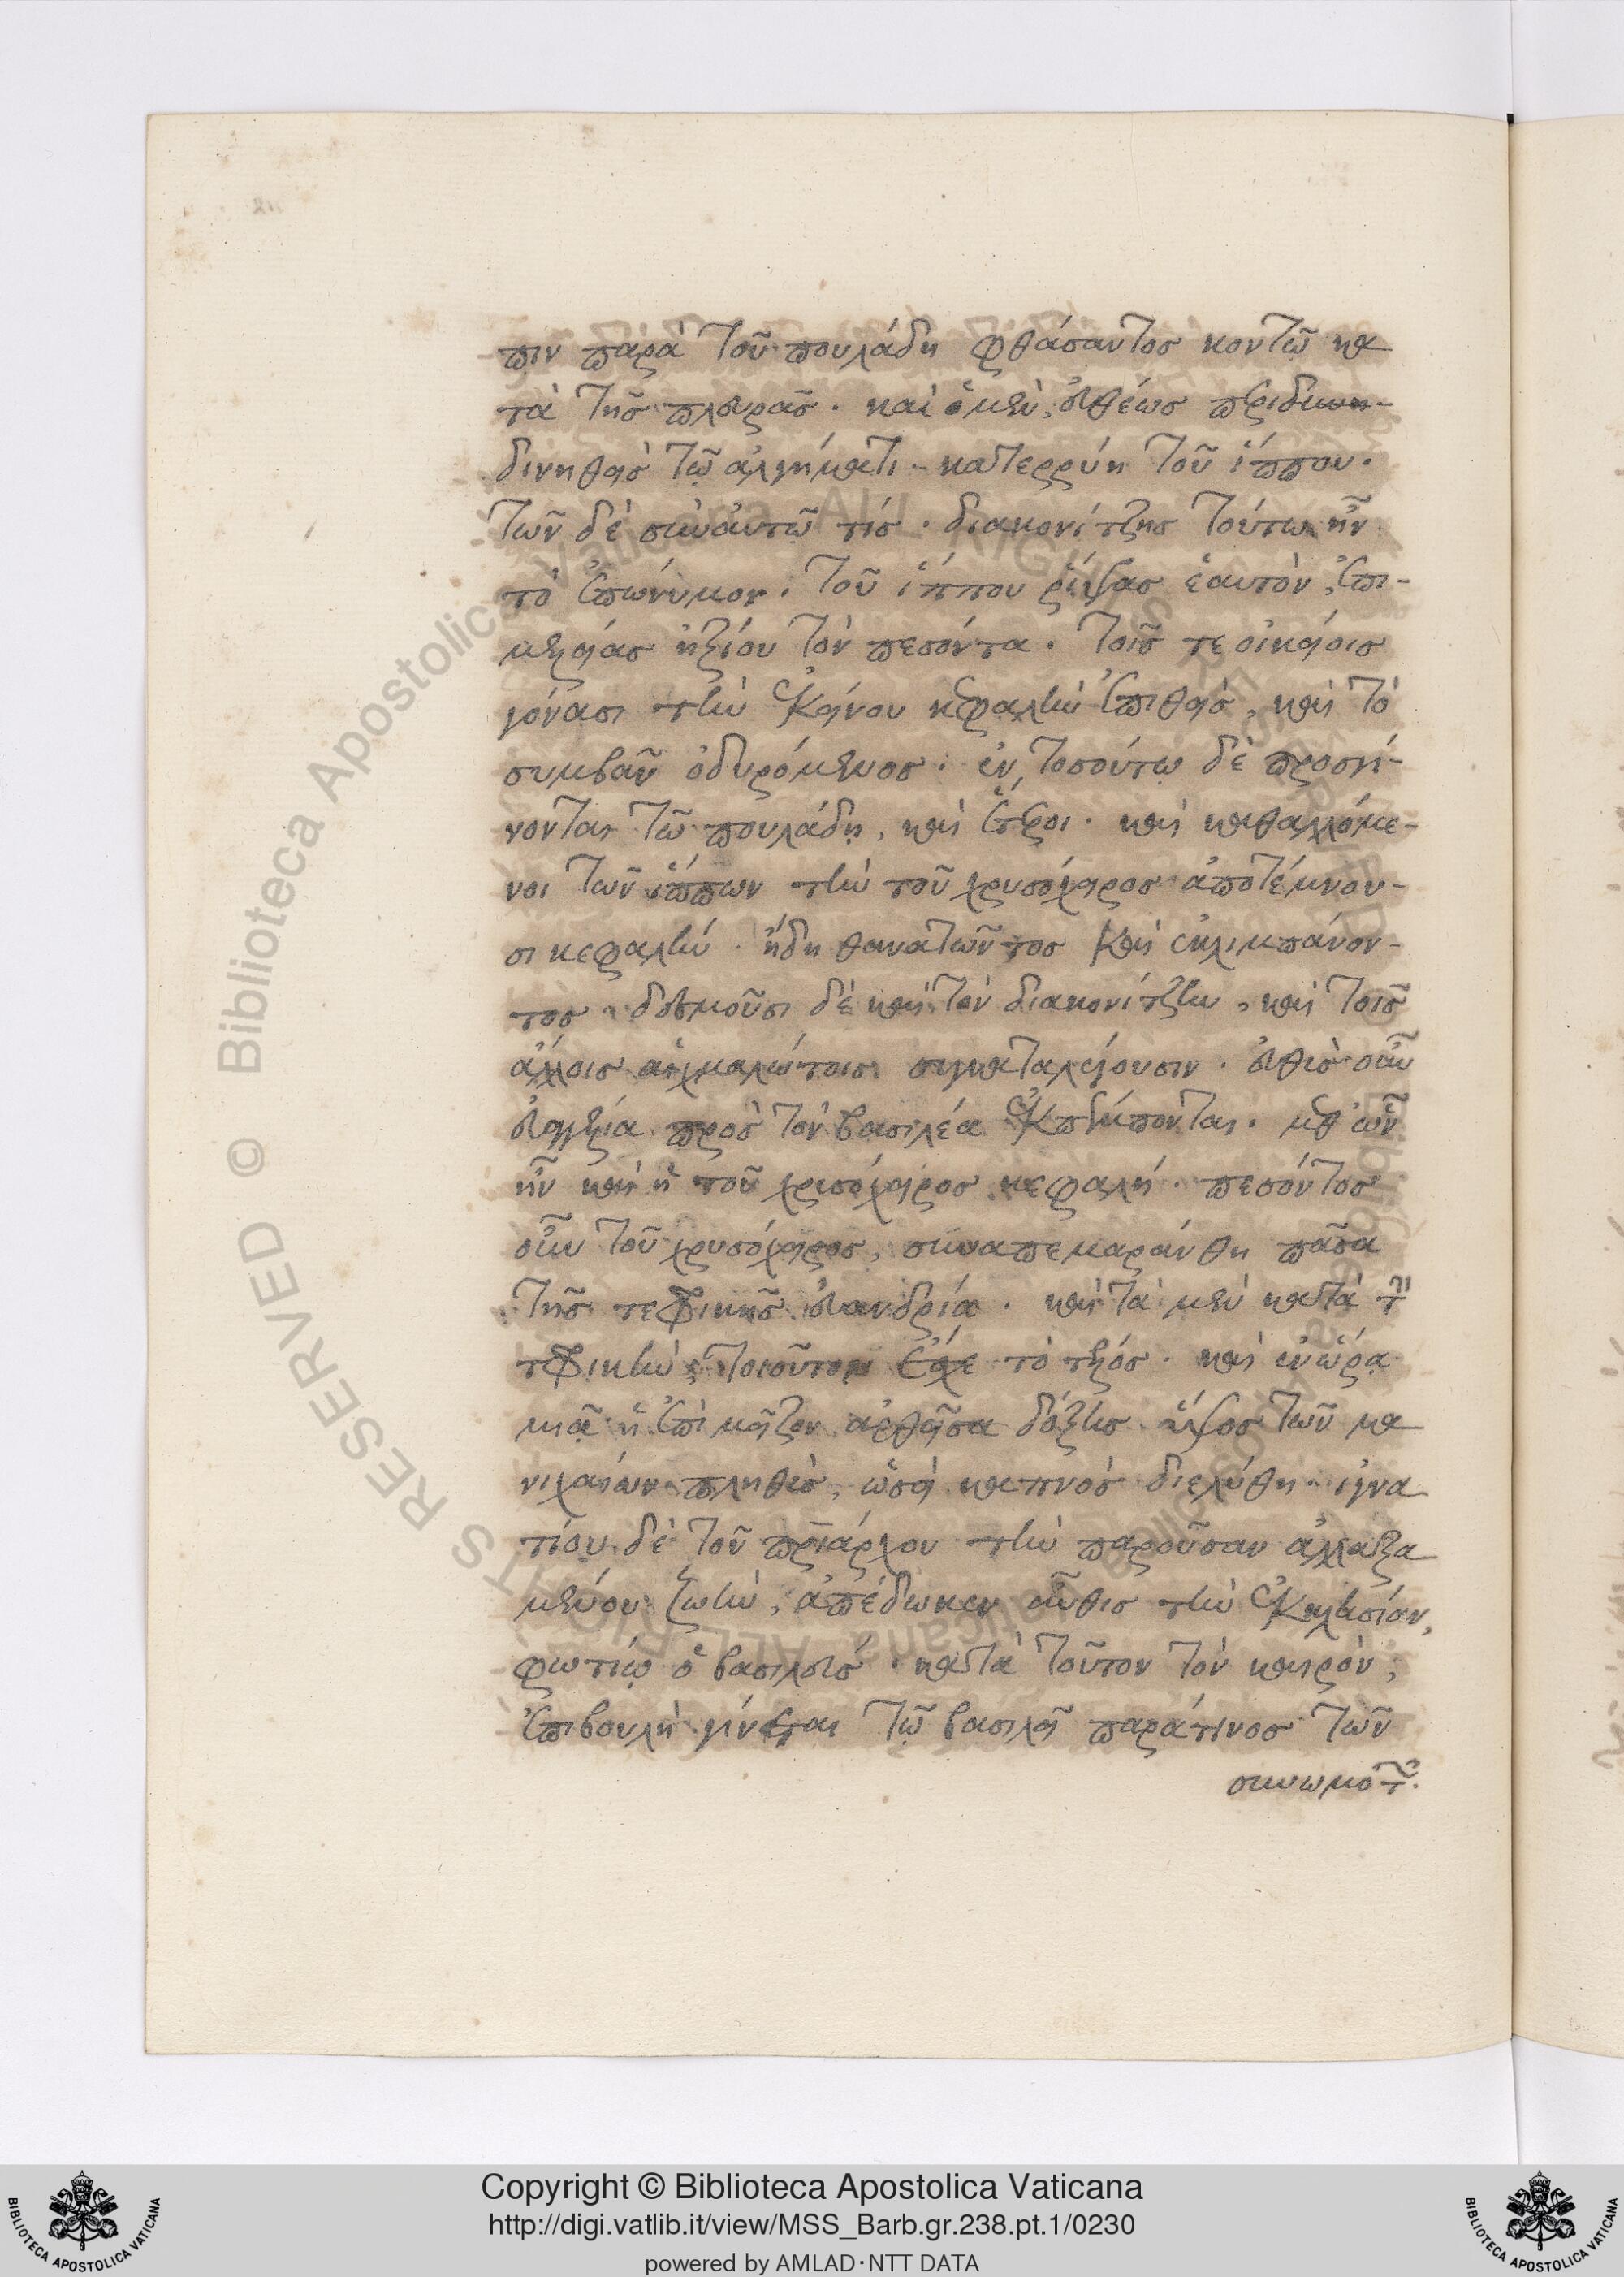 πιν παρὰ τοῦ πουλάδη φθάσαντος κοντῷ κα
τὰ τῆς πλευρᾶς· καὶ ὁ μὲν, εὐθέως περιδ
δινηθεὶς τῷ ἀλγήματι· κατερρύη τοῦ ἵππου.
τῶν δὲ σὺν αὐτῷ τίς· διακονίτζης τούτω ἦν
τὸ ἐπώνυμον· τοῦ ἵππου ῥίψας ἑαυτὸν, ἐπι-
μελείας ἠξίου τὸν πεσόντα. τοῖς τε οἰκείοις
γόνασι τὴν ἐκείνου κεφαλὴν ἐπιθεὶς, καὶ τὸ
συμβὰν ὀδυρόμενος· ἐν τοσούτῳ δὲ προσγί-
νονται τῷ πουλάδῃ, καὶ ἕτεροι· καὶ καθαλλόμε-
νοι τῶν ἵππων τὴν τοῦ χρυσόχειρος ἀποτέμνου-
σι κεφαλὴν· ἤδη θανατῶντος καὶ ἐκλιμπάνον-
τος· δεσμοῦσι δὲ καὶ τὸν διακονίτζην, καὶ τοῖς
ἄλλοις αἰχμαλώτοις συγκαταλέγουσιν· εὐθὺς οὖν
εὐαγγέλια πρὸς τὸν βασιλέα ἐκπέμπονται· μεθ' ὧν
ἦν καὶ ἡ τοῦ χρισόχειρος κεφαλή· πεσόντος
οὖν τοῦ χρυσόχειρος, συναπεμαράνθη πᾶσα
τῆς τεφρικῆς εὐανδρία· καὶ τὰ μὲν κατὰ τὴν
τεφρικὴν, τοιοῦτον ἔσχε τὸ τέλος· καὶ ἐν ὥρᾳ
μιᾷ ἡ ἐπὶ μεῖζον ἀρθεῖσα δόξης ὕψος τῶν μα
νιχαίων πληθὺς, ὡσεὶ καπνὸς διελύθη· ἰγνα
τίου δὲ τοῦ πριάρχου τὴν παροῦσαν ἀλλαξα
μένου ζωὴν, ἀπέδωκεν αὖθις τὴν ἐκκλησίαν,
φωτίῳ ὁ βασιλεύς· κατὰ τοῦτον τὸν καιρὸν,
ἐπιβουλὴ γίνεται τῷ βασιλεῖ παρά τινος τῶν
συνωμοτ.
© Biblioteca Apostolica Vaticana ALL RIGHTS RESERVED
Copyright © Biblioteca Apostolica Vaticana
http://digi.vatlib.it/view/MSS_Barb.gr.238.pt.1/0230
powered by AMLAD·NTT DATA
BIBLIOTECA APOSTOLICA VATICANA
BIBLIOTECA APOSTOLICA VATICANA